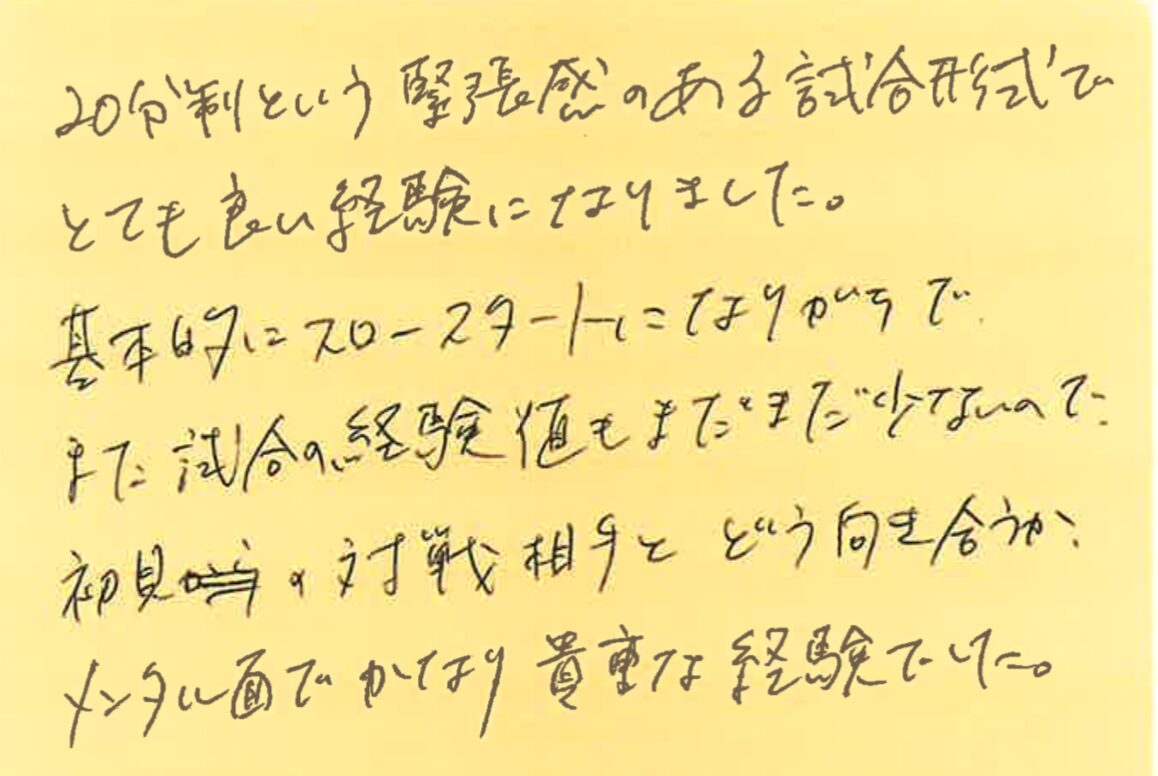 20分制という緊張感のある試合形式で
とても良い経験になりました。
基本的にスロースタートになりがちで
また試合の経験値もまだまだ少ないので、
初見の対戦相手とどう向き合うか、
メンタル面でかなり貴重な経験でした。